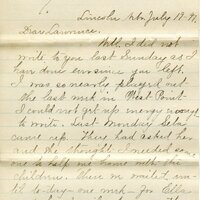 Lincoln, Feb. July 18-97.
Dear Lawrence,
Well, I did not
write to you last Sunday as I
have done ever since you left.
I was so nearly played out
the last week in West Point
I could not get up energy enough
to write. Last Monday Seta
came up. Fred had asked her
and she thought I needed some
one to help me home with the
children. There we waited un-
til to-day - one week - for Ella